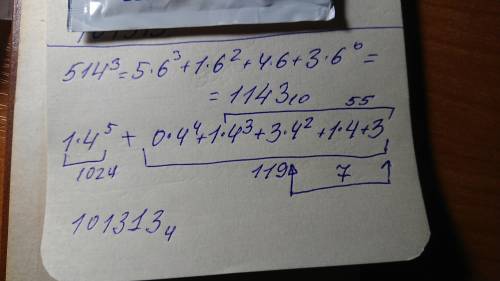 514³=5·6³+1·6²+4·6+3·6⁰=
=1143₁₀ 55
1·4⁵ + 0·4⁴+1·4³+3·4²+1·4+3
1024 119 7
101313₄